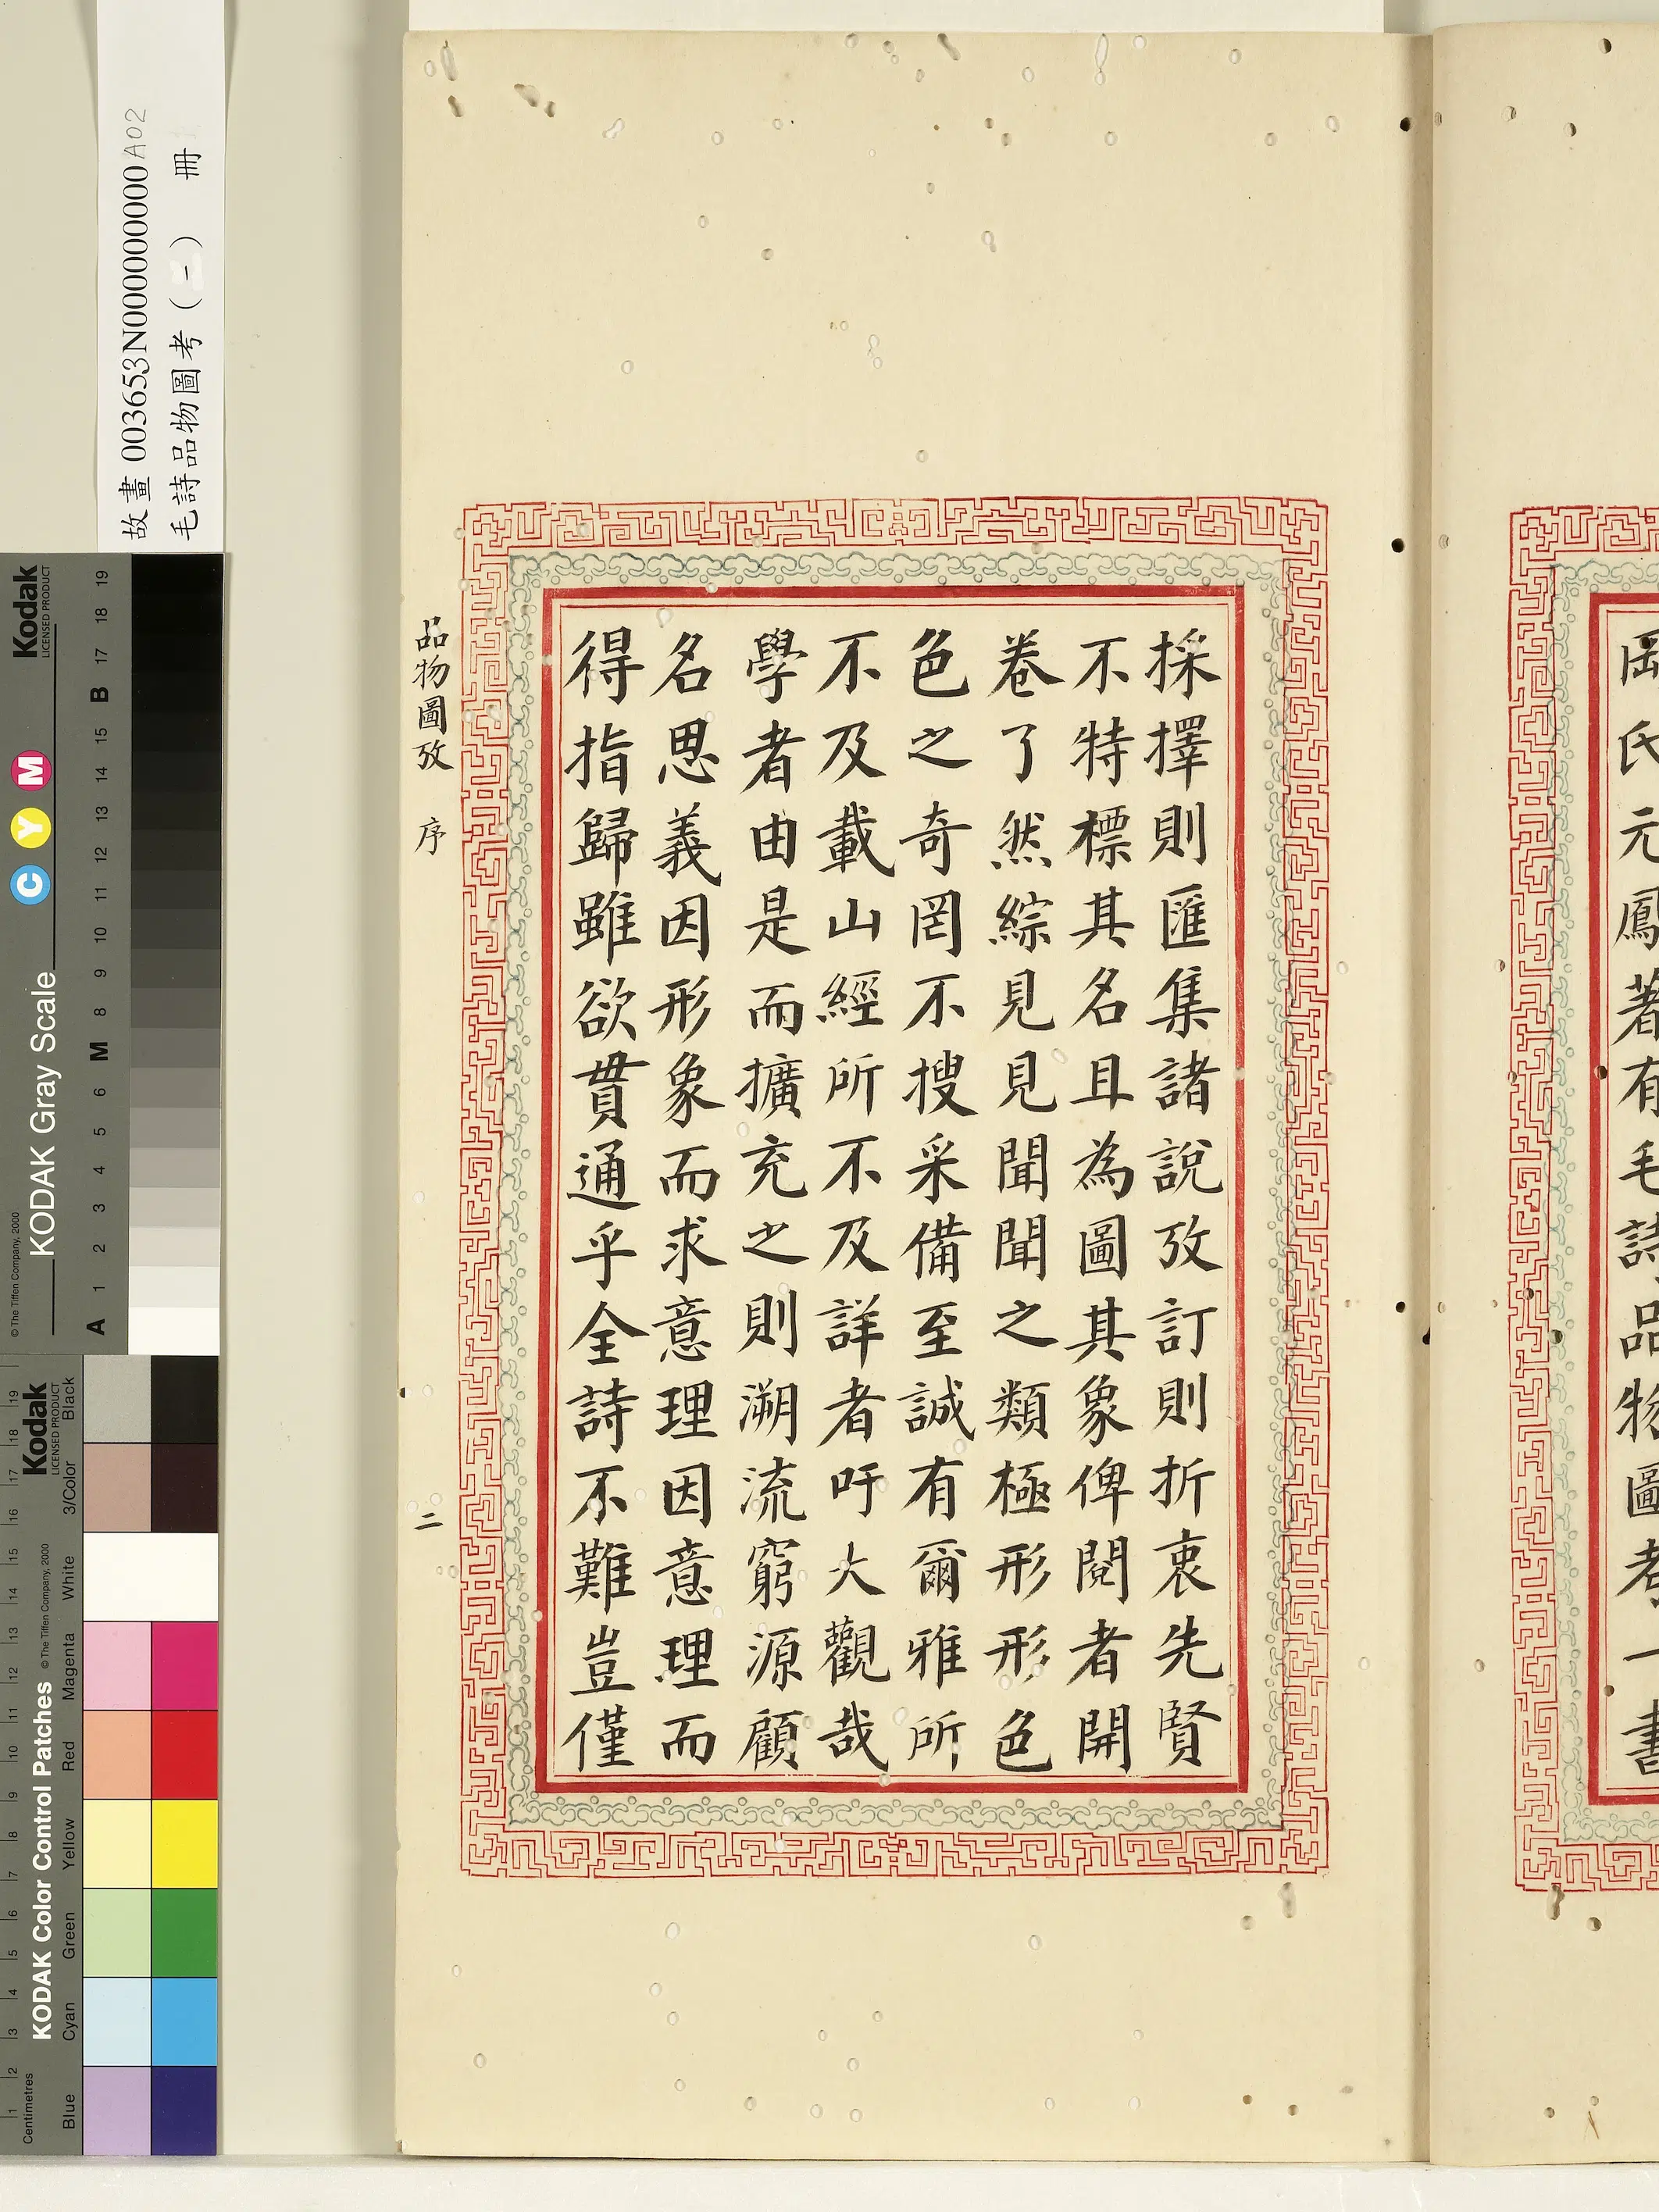 岡氏元鳳著有毛詩品物圖考一書
採擇則匯集諸說攷訂則折衷先賢
不特標其名且為圖其象俾閱者開
卷了然綜見見聞聞之類極形形色
色之奇罔不搜采備至誠有爾雅所
不及載山經所不及詳者吁大觀哉
學者由是而擴充之則溯流窮源顧
名思義因形象而求意理因意理而
得指歸雖欲貫通乎全詩不難豈僅
品物圖攷 序 二
故畫 003653N000000000A02
毛詩品物圖考(二) 冊
Kodak
LICENSED PRODUCT
KODAK Gray Scale
C Y M
© The Tiffen Company, 2000
A 1 2 3 4 5 6 M 8 9 10 11 12 13 14 15 B 17 18 19
Kodak
LICENSED PRODUCT
KODAK Color Control Patches
© The Tiffen Company, 2000
Blue Cyan Green Yellow Red Magenta White 3/Color Black
Centimetres
1 2 3 4 5 6 7 8 9 10 11 12 13 14 15 16 17 18 19